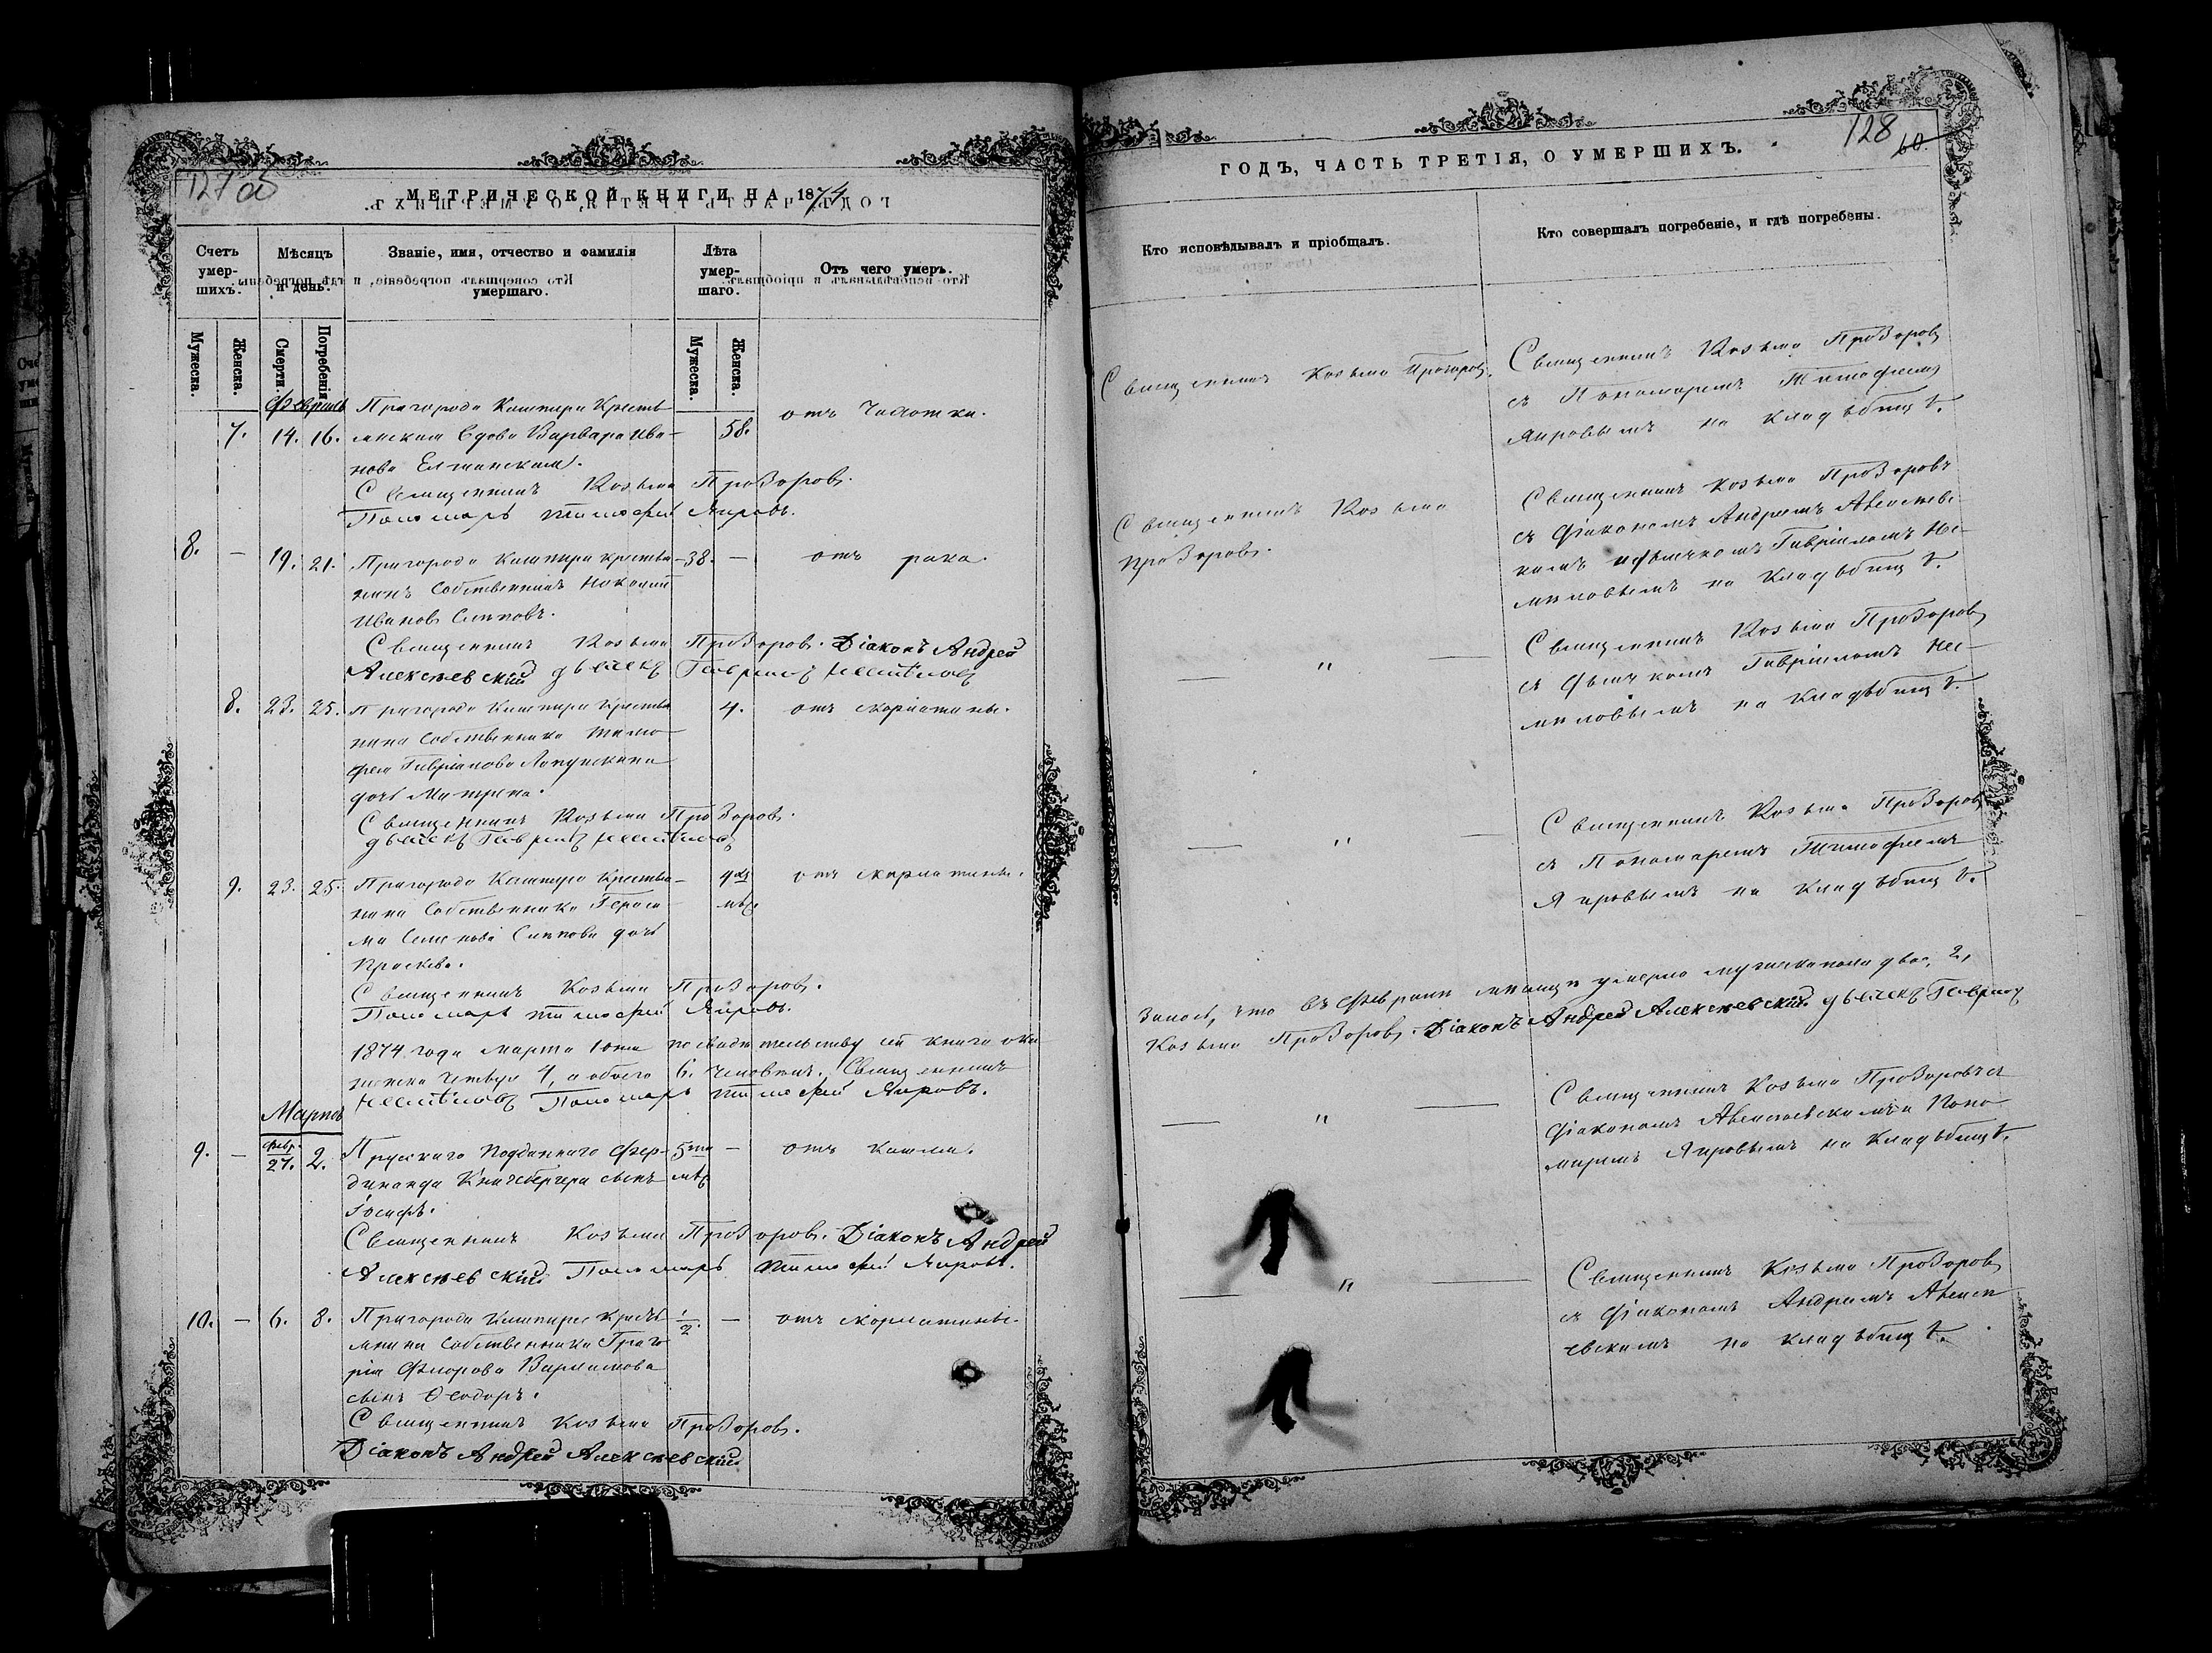 127 об
МЕТРИЧЕСКОЙ КНИГИ НА 1874
Счетъ умер-шихъ.
Мѣсяцъ и день.
Званіе, имя, отчество и фамилія умершаго.
Лѣта умер-шаго.
Отъ чего умеръ.
Мужеска.
Женска.
Смерти.
Погребенія
Мужеска.
Женска.
Февраль
7. 14. 16. Пригорода Кашпира Кресть
янская вдова Варвара Ива- 58. отъ чахотки.
нова
Священникъ Козьма Прозоровъ.
Пономарь Тимофей Яировъ.
8. — 19. 21. Пригорода Кашпира крестья- 38. — отъ рака.
нинъ собственникъ
Ивановъ
Священникъ Козьма Прозоровъ. Діаконъ Андрей
Алексѣевскій дьячекъ Гавріилъ
8. 23. 25. Пригорода Кашпира крестья 4. отъ скарлатины.
нина собственника Тимо
фея Гаврилова
дочь Матрена.
Священникъ Козьма Прозоровъ.
дьячекъ Гавріилъ
9. 23. 25. Пригорода Кашпира крестья- 9 мѣс. отъ скарлатины.
нина собственника Гераси
ма Семенова дочь
Праскева.
Священникъ Козьма Прозоровъ.
Пономарь Тимофей Яировъ.
1874 года марта 1 дня по свидѣтельству сей книги ока
женска четыре 4, а обоего 6. человѣкъ. Священникъ
Пономарь Тимофей Яировъ.
Мартъ
9. — Февр. 27. 2. Прусскаго подданнаго Фер- 5 — отъ кашля.
динанда сынъ мѣс
Іосифъ.
Священникъ Козьма Прозоровъ. Діаконъ Андрей
Алексѣевскій Пономарь Тимофей Яировъ.
10. — 6. 8. Пригорода Кашпира кресть 1/2. — отъ скарлатины.
янина собственника Григо
рія Флорова Варламова
сынъ Ѳеодоръ.
Священникъ Козьма Прозоровъ.
Діаконъ Андрей Алексѣевскій
128
60.
ГОДЪ, ЧАСТЬ ТРЕТІЯ, О УМЕРШИХЪ.
Кто исповѣдывалъ и пріобщалъ.
Кто совершалъ погребеніе, и гдѣ погребены.
Священникъ Козьма Прозоровъ. Священникъ Козьма Прозоровъ
съ Пономаремъ Тимофеемъ
Яировымъ на кладьбищѣ.
Священникъ Козьма Священникъ Козьма Прозоровъ
Прозоровъ. съ Діакономъ Андреемъ Алексѣев-
скимъ и дьячкомъ Гавріиломъ
на кладьбищѣ.
— " — Священникъ Козьма Прозоровъ
съ дьячкомъ Гавріиломъ
на кладьбищѣ.
— " — Священникъ Козьма Прозоровъ
съ Пономаремъ Тимофеемъ
Яировымъ на кладьбищѣ.
что въ Февралѣ мѣсяцѣ умерло мужеска пола два, 2,
Козьма Прозоровъ. Діаконъ Андрей Алексѣевскій дьячекъ Гавріилъ
— " — Священникъ Козьма Прозоровъ съ
Діакономъ Алексѣевскимъ и Поно
маремъ Яировымъ на кладьбищѣ.
— " — Священникъ Козьма Прозоровъ
съ Діакономъ Андреемъ Алексѣ
евскимъ на кладьбищѣ.